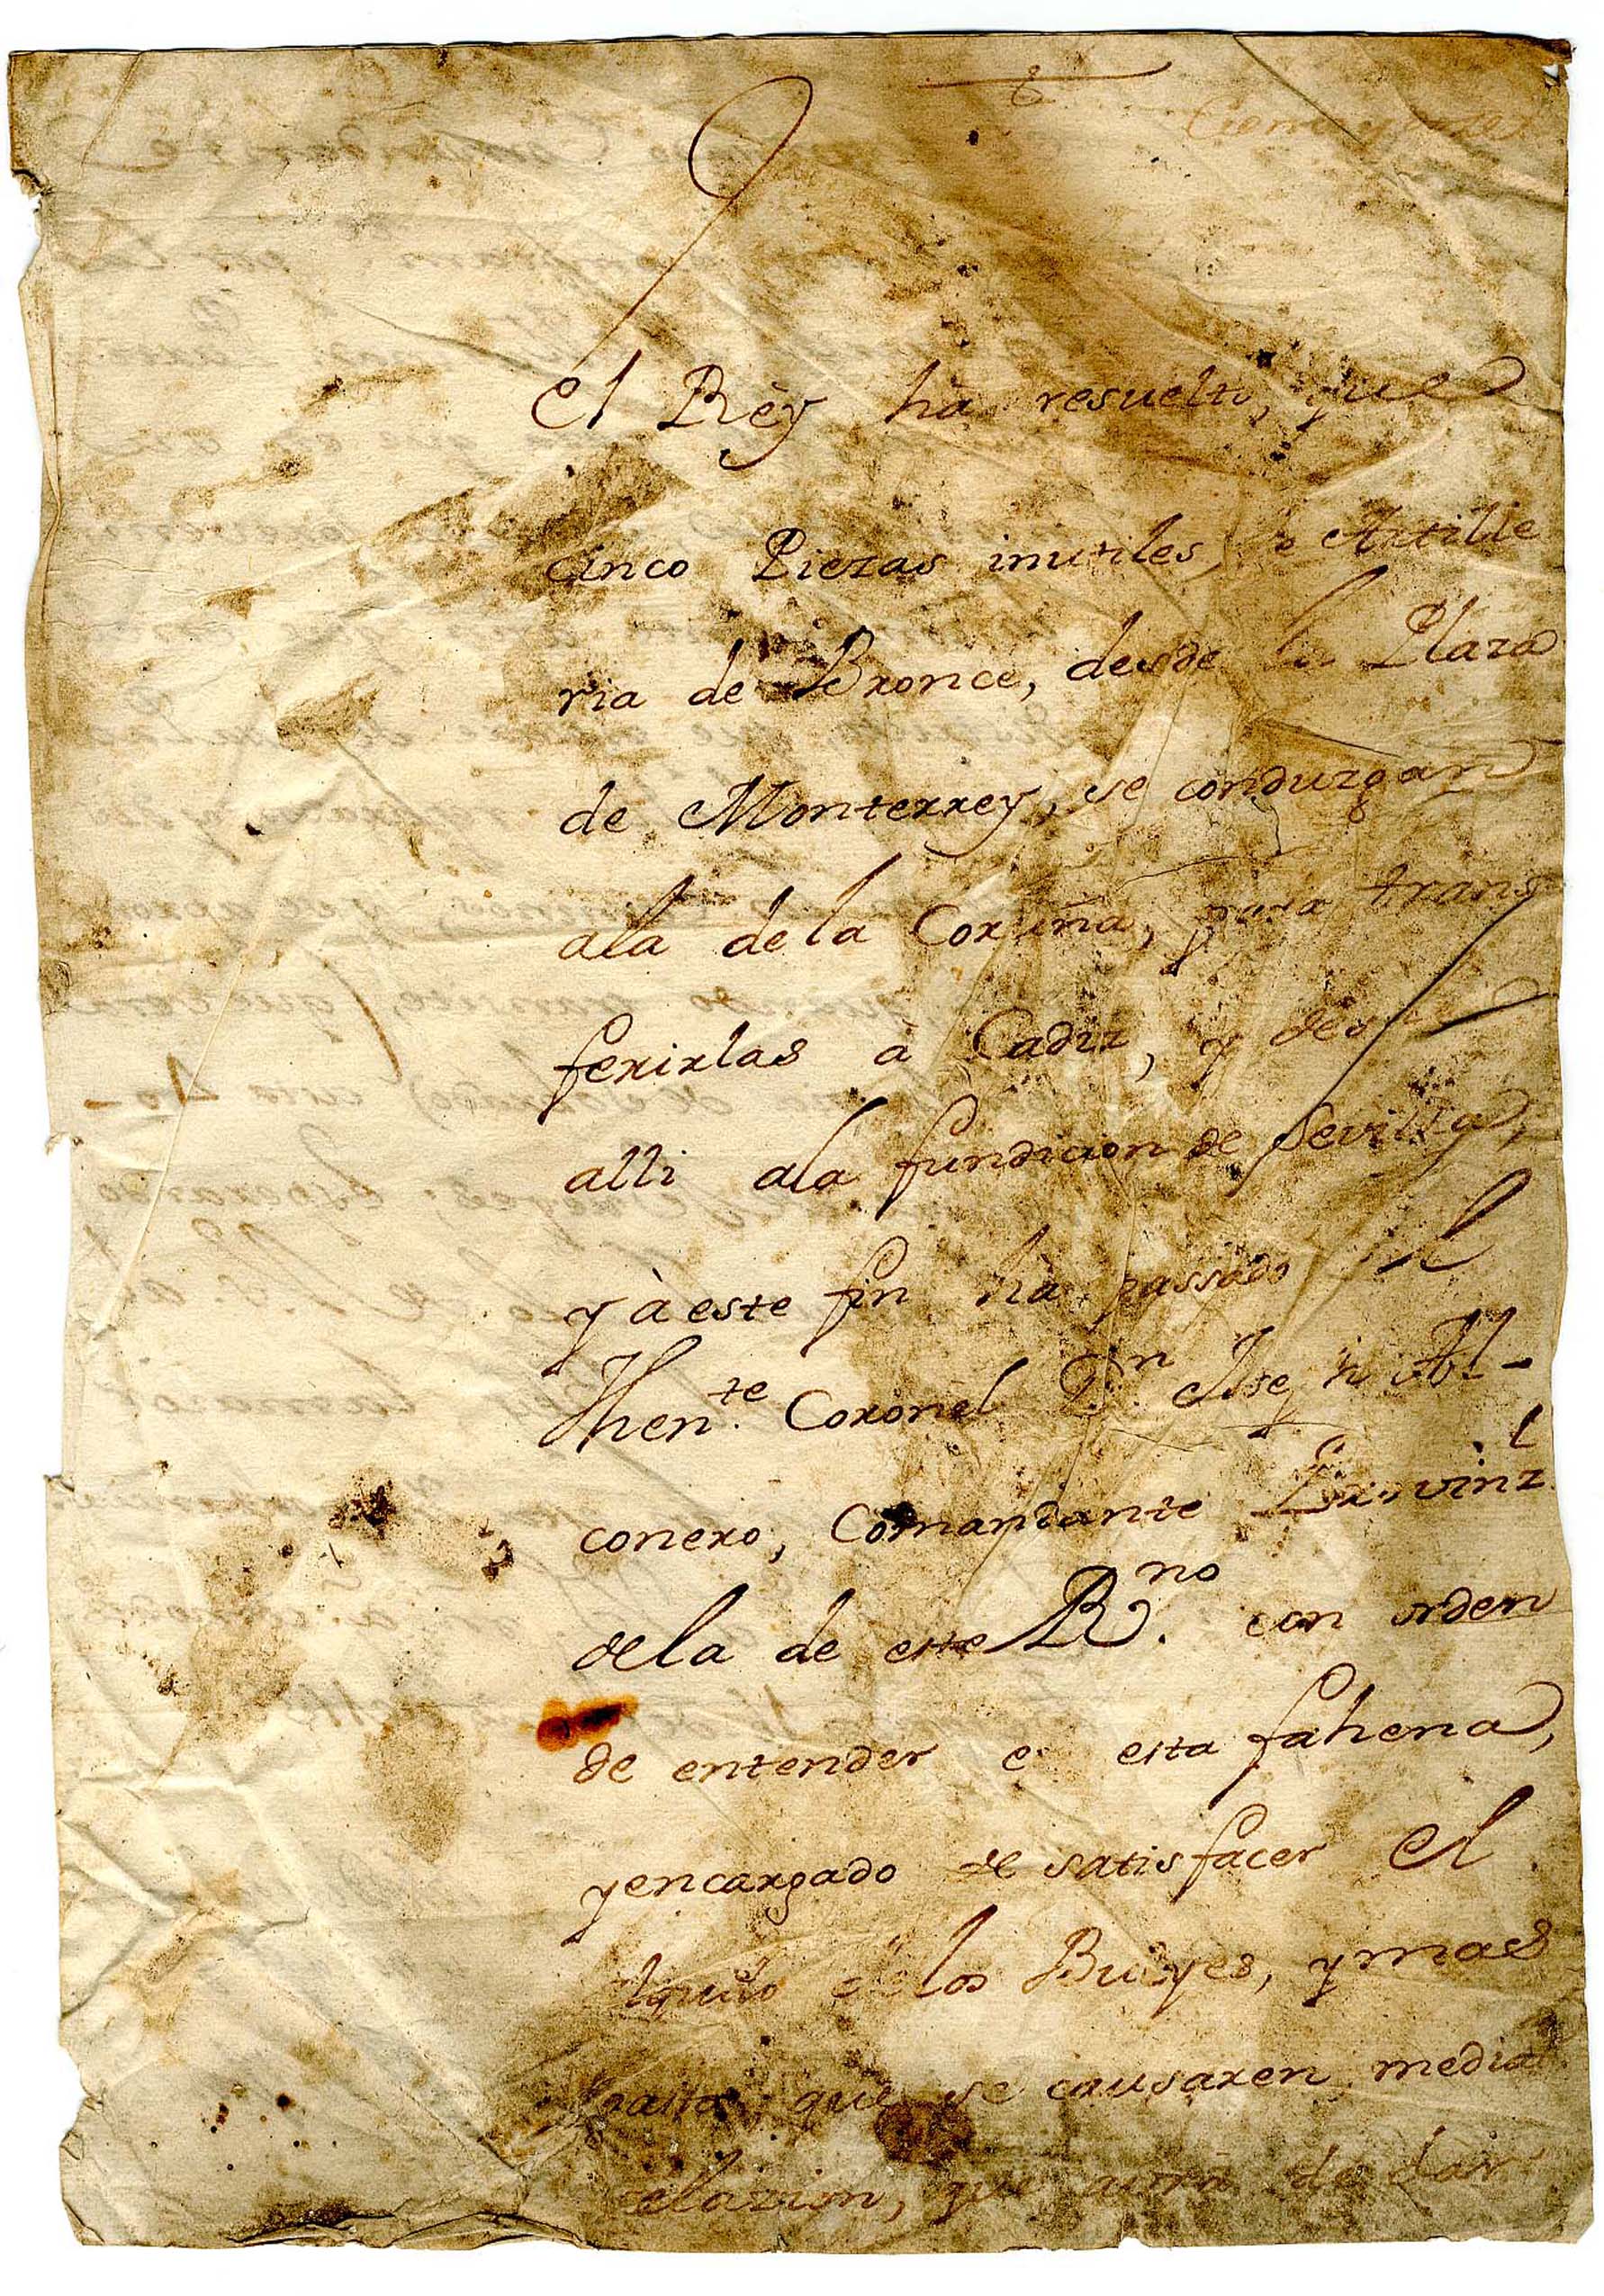 El Rey ha resuelto, que
cinco Piezas inutiles, de Artille
ria de Bronce, desde la Plaza
de Monterrey, se conduzgan
ala de la Coruña, para trans
ferirlas à Cadiz, y desde
alli ala fundicion de Sevilla,
y à este fin ha passado el
Then.te Coronel D.n Joseph Al-
conero, Comandante Provinz.l
dela de este R.no con orden
de entender en esta fahena,
y encargado de satisfacer el
de los Bueyes, y mas
gastos que se causaren media
relazion, que de dar